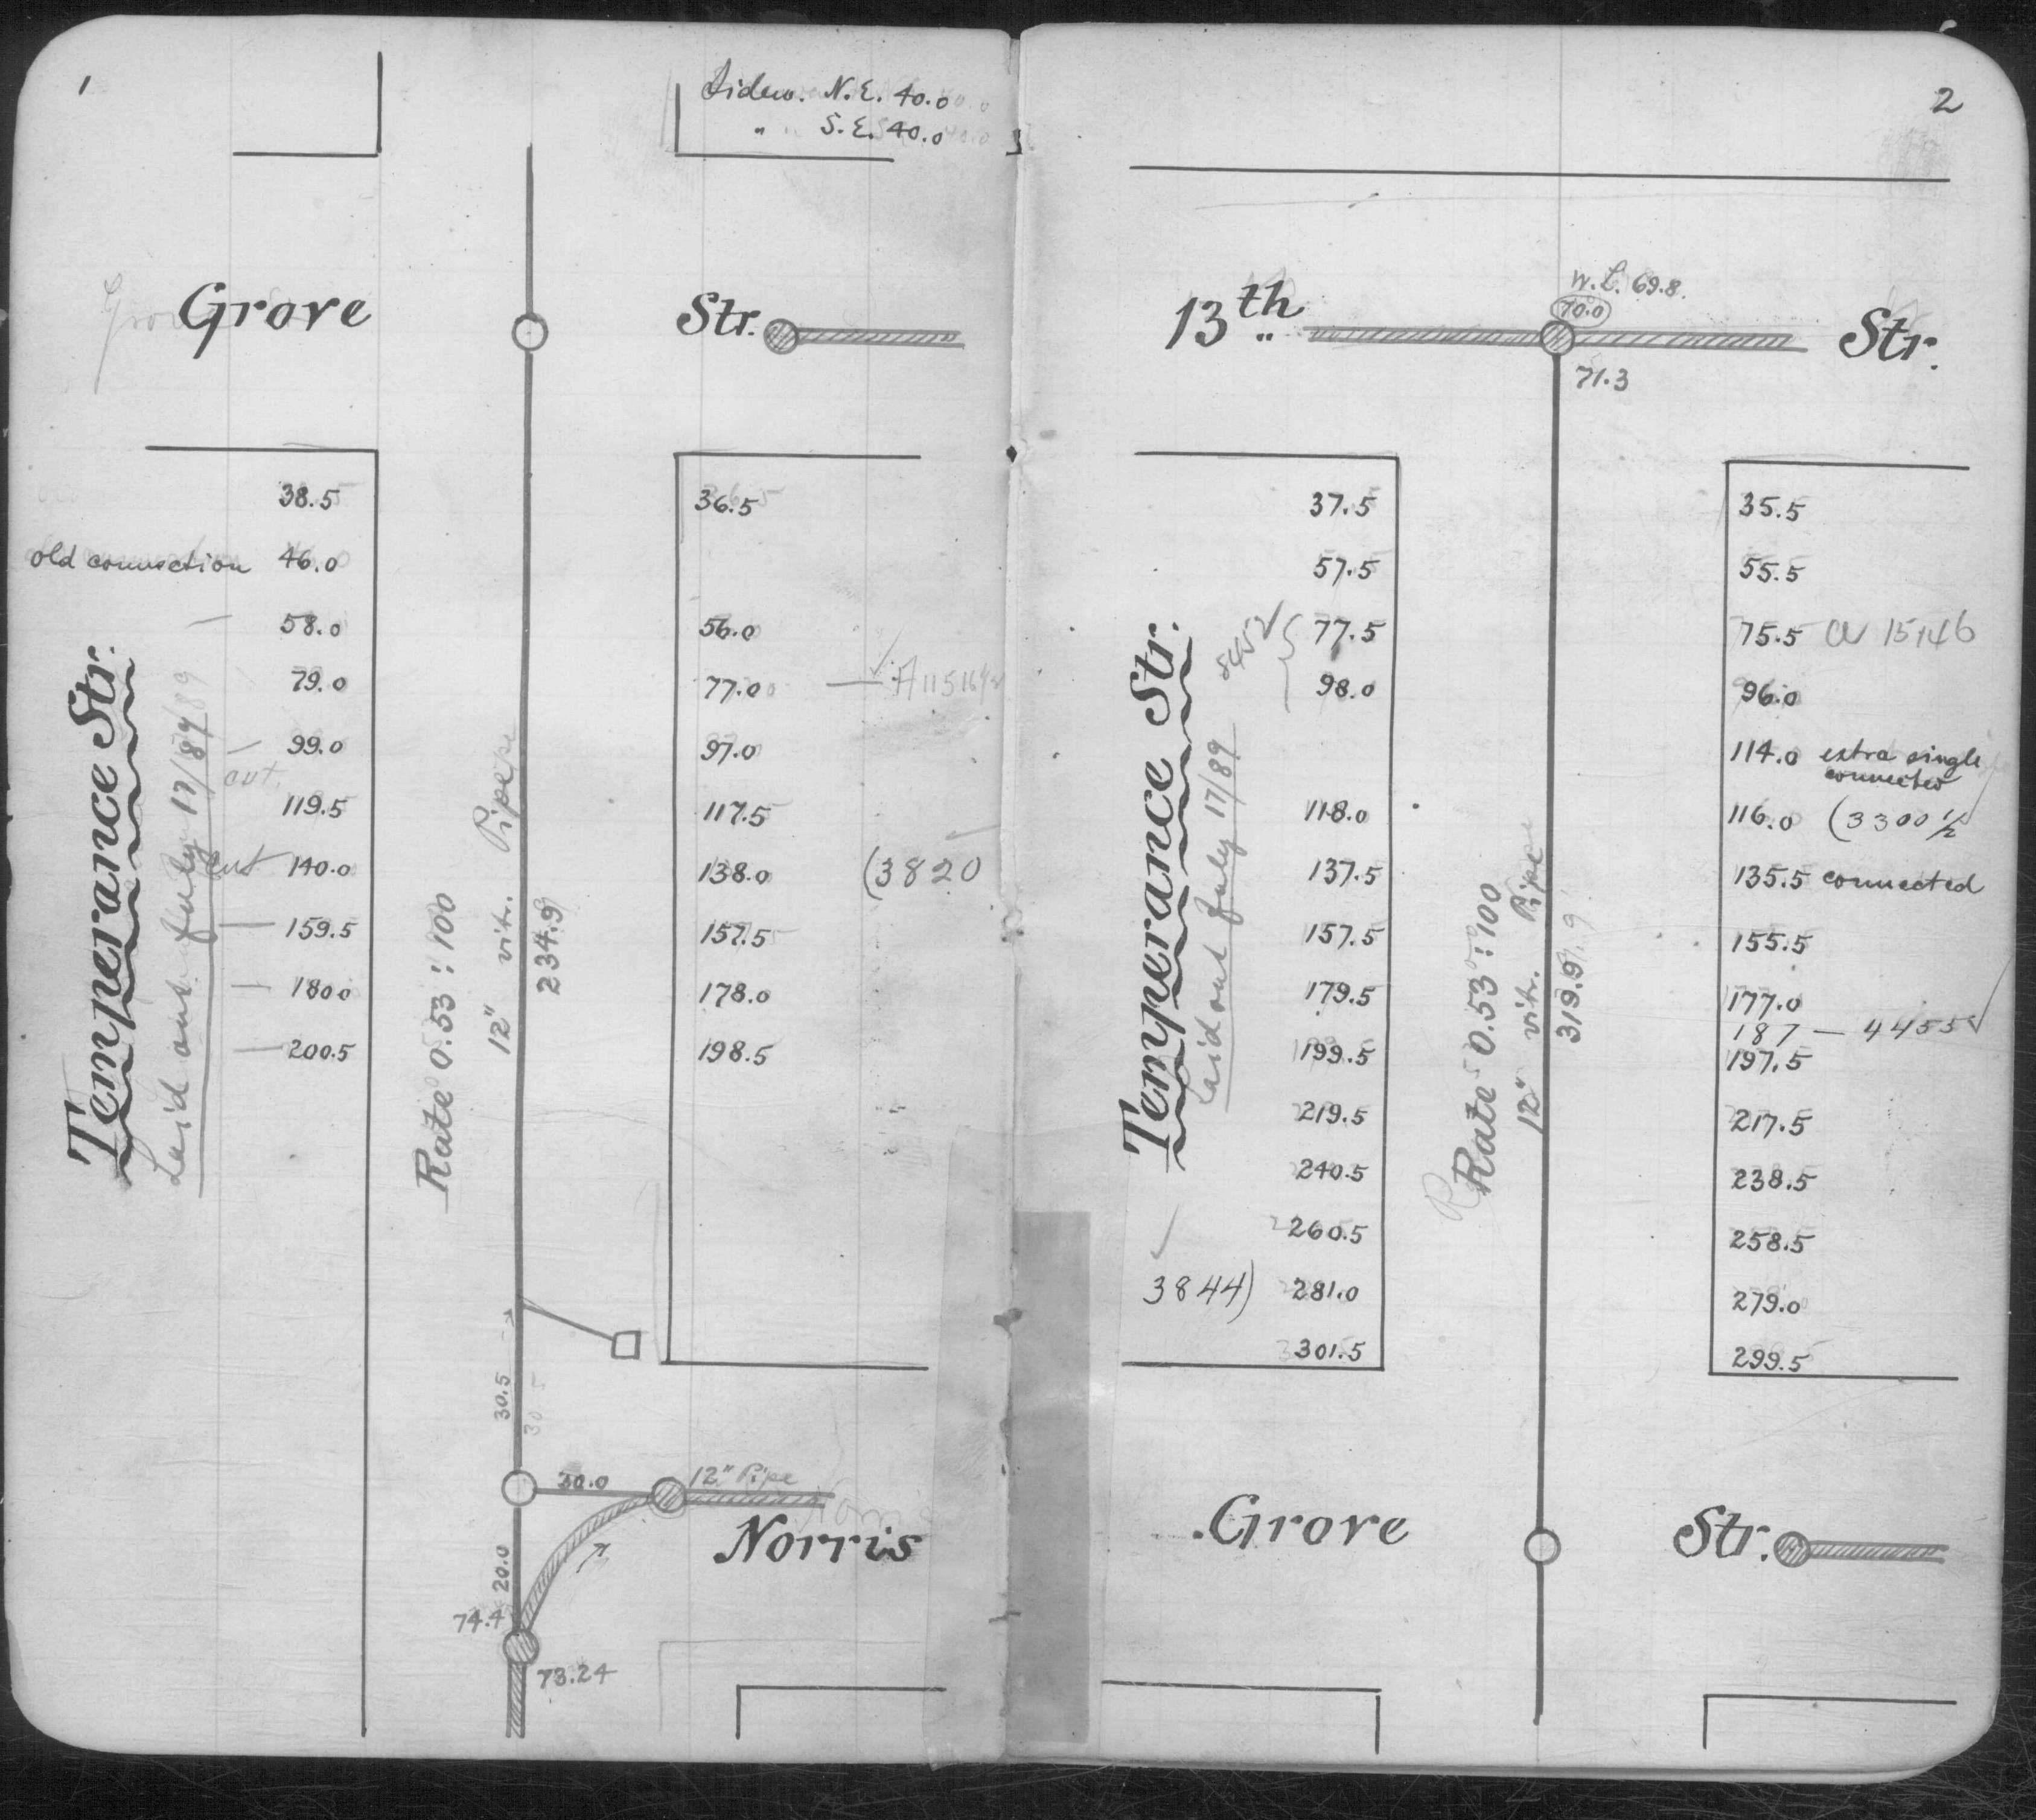 1
Sidew. N.E. 40.0
" S.E. 40.0
Grove Str.
38.5
old connection 46.0
58.0
79.0
99.0
out
119.5
cut 140.0
159.5
180.0
200.5
Temperance Str.
Laid out July 17/89
Rate 0.53 : 100
12" vitr. Pipe
234.9
36.5
56.0
77.0
97.0
117.5
138.0 (3820
157.5
178.0
198.5
30.5
30.0
12" Pipe
Norris
20.0
74.4
73.24
2
W.L. 69.8
70.0
13th Str.
71.3
37.5
57.5
77.5
98.0
118.0
137.5
157.5
179.5
199.5
219.5
240.5
260.5
3844) 281.0
301.5
Temperance Str.
Laid out July 17/89
Rate 0.53 : 100
12" vitr. Pipe
319.9
35.5
55.5
75.5 15146
96.0
114.0 extra single
connected
116.0 (3300 1/2
135.5 connected
155.5
177.0
187 — 4455
197.5
217.5
238.5
258.5
279.0
299.5
Grove Str.